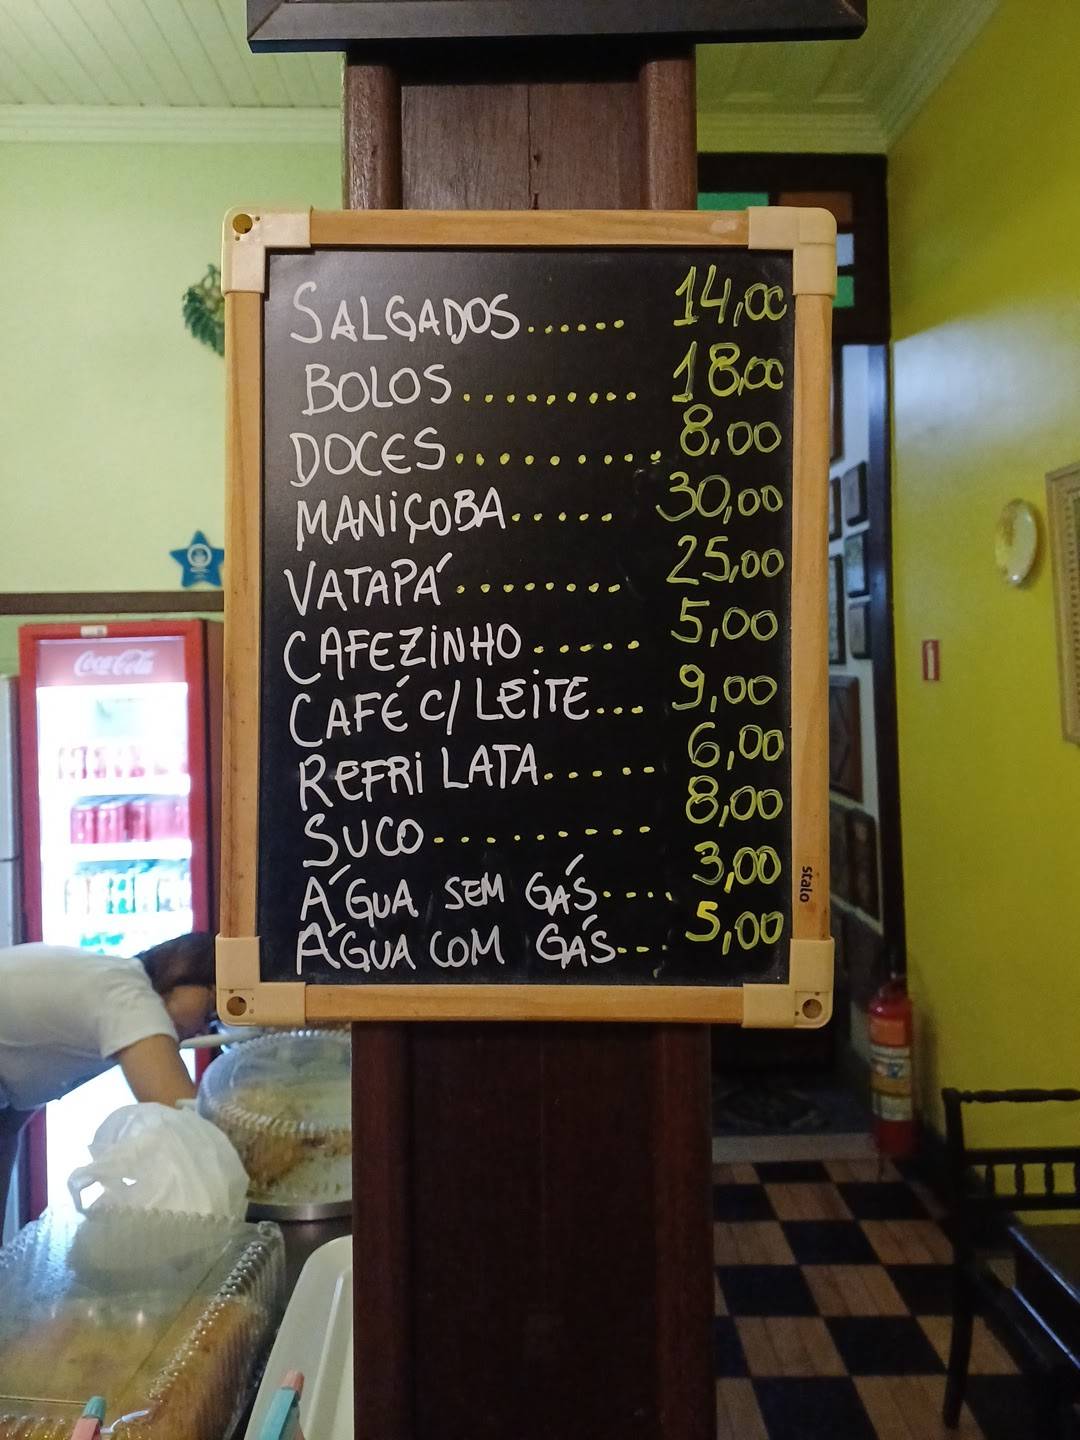 SALGADOS...... 14,00
BOLOS......... 18,00
DOCES.......... 8,00
MANIÇOBA..... 30,00
VATAPÁ........ 25,00
CAFEZINHO..... 5,00
CAFÉ C/ LEITE... 9,00
REFRI LATA..... 6,00
SUCO......... 8,00
ÁGUA SEM GÁS.... 3,00
ÁGUA COM GÁS... 5,00
stalo
Coca-Cola